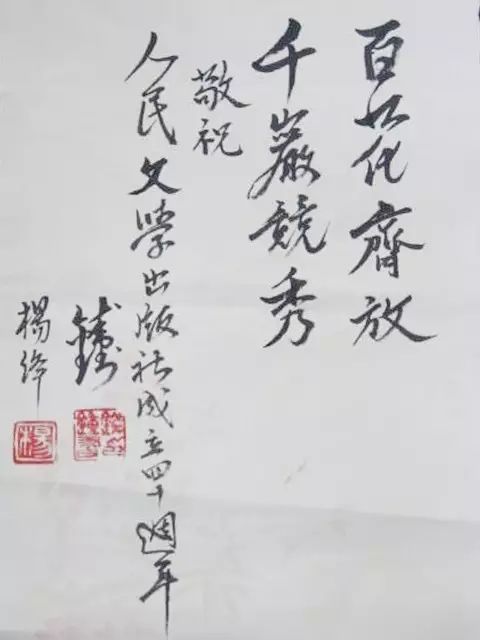 百花齊放
千巖競秀
敬祝
人民文學出版社成立四十週年
楊絳